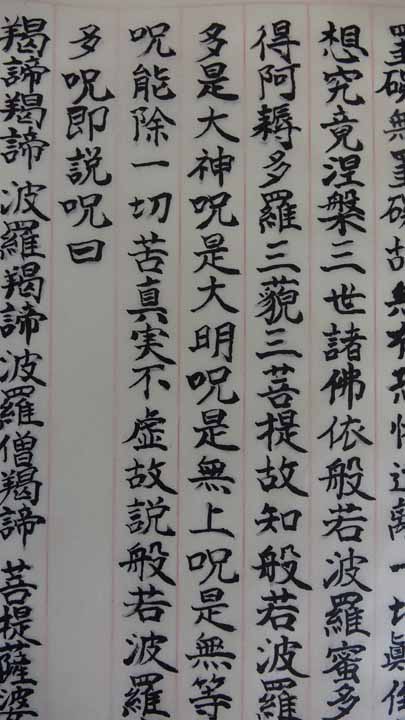 罣礙無罣礙故無有恐怖遠離一切顛倒
想究竟涅槃三世諸佛依般若波羅蜜多
得阿耨多羅三藐三菩提故知般若波羅
多是大神呪是大明呪是無上呪是無等
呪能除一切苦真実不虚故説般若波羅
多呪即説呪曰
羯諦羯諦 波羅羯諦 波羅僧羯諦 菩提薩婆